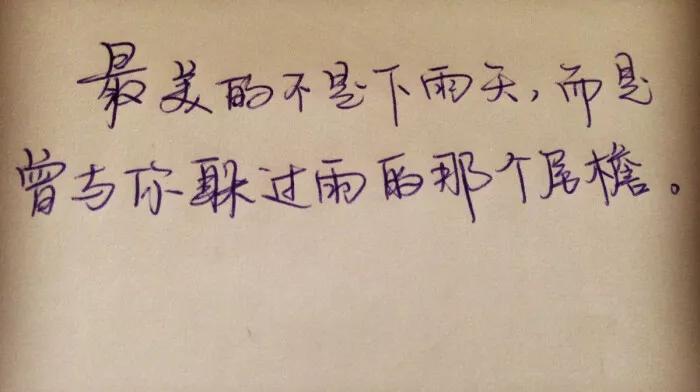 最美的不是下雨天，而是
曾与你躲过雨的那个屋檐。